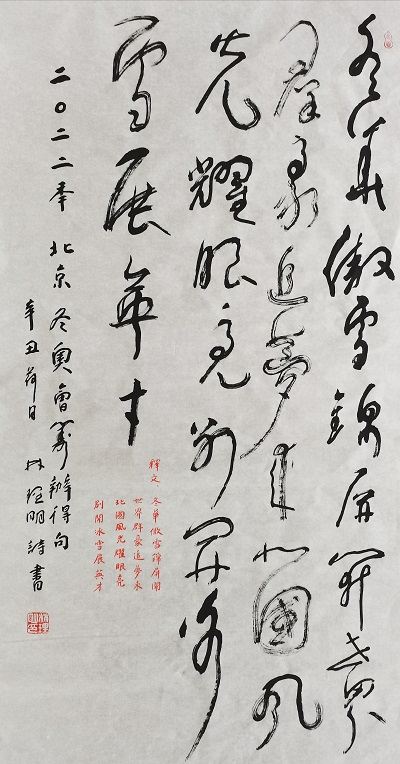 冬華傲雪錦屏開世界
群豪追夢來北國風
光耀眼亮別開冰
雪展英才
釋文 冬華傲雪錦屏開
世界群豪追夢來
北國風光耀眼亮
別開冰雪展英才
二〇二二年北京冬奧會籌辦得句
辛丑荷日 林理明詩書